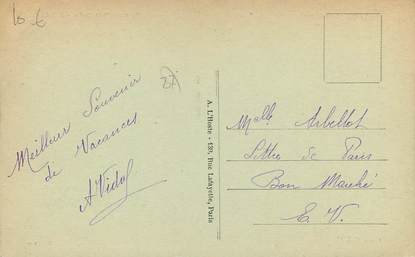 10 €
Meilleur Souvenir
de Vacances
A Vidal
A. L'Hoste - 139, Rue Lafayette, Paris
Melle Arbellot
de Paris
Bon Marché
E. V.